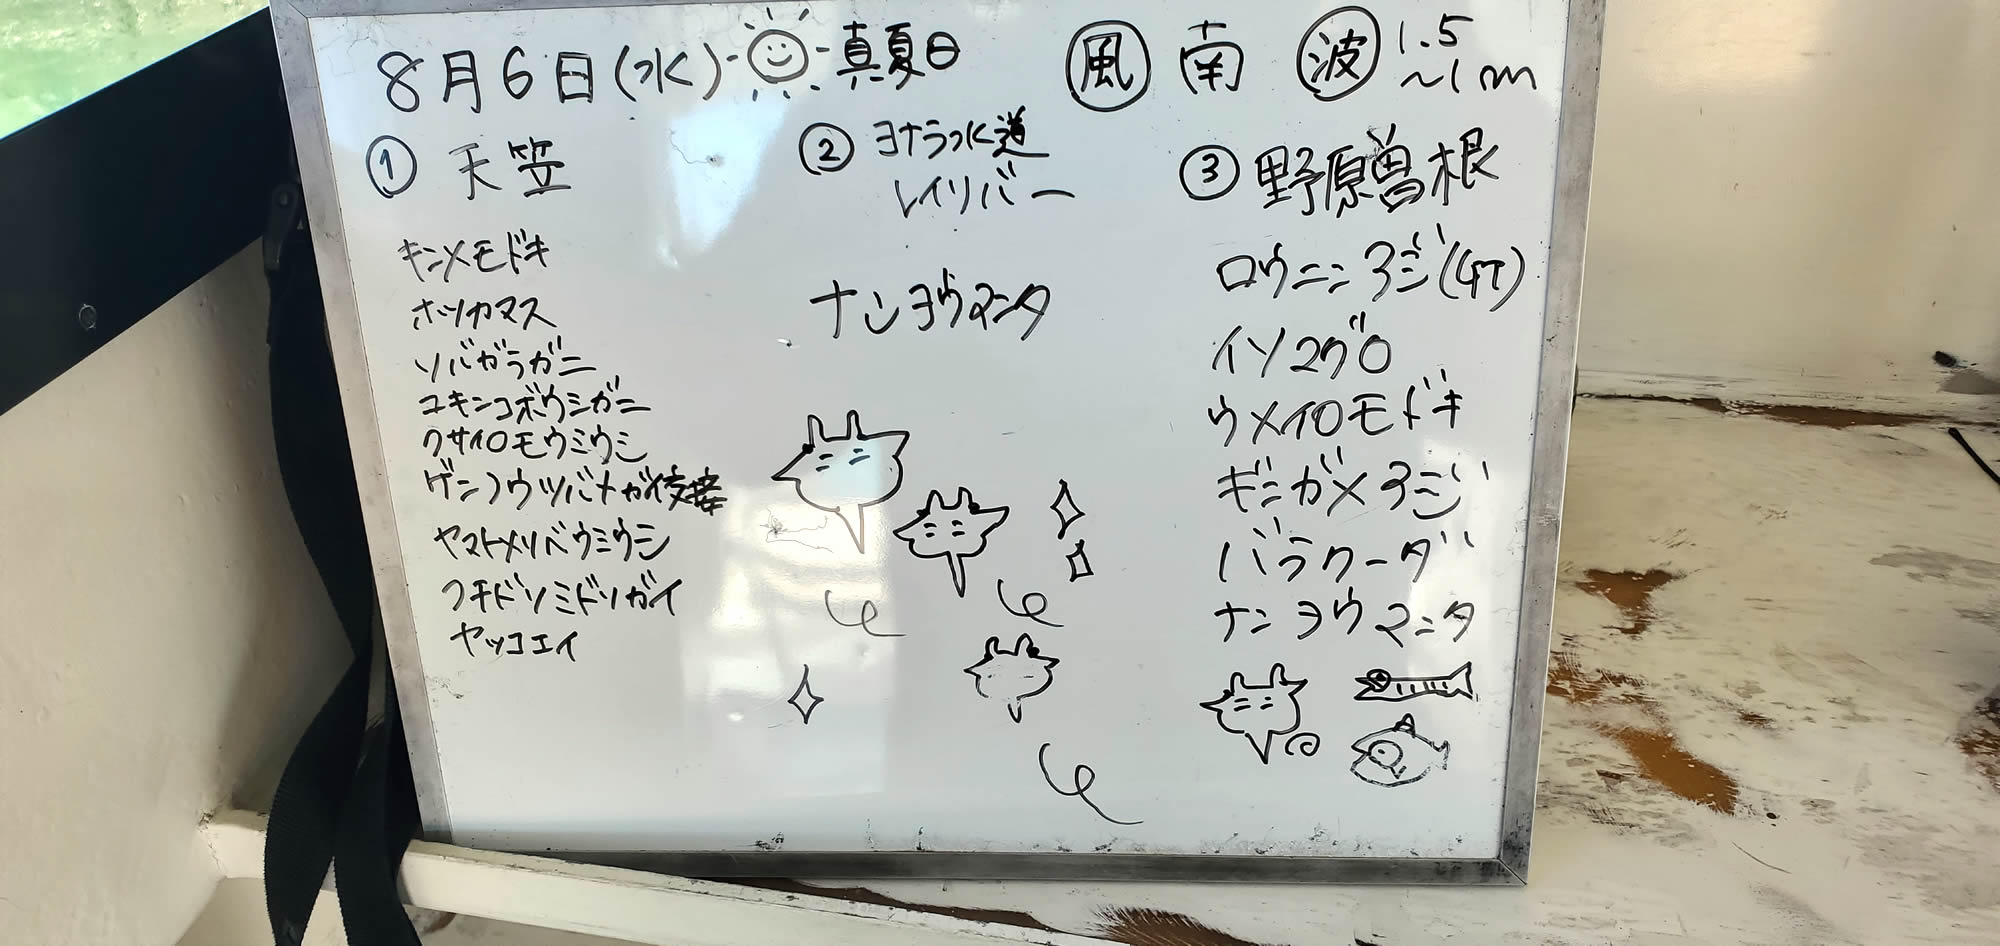 8月6日(水) 真夏日 風 南 波 1.5
～1m
① 天笠
キンメモドキ
ホソカマス
ソバガラガニ
ユキンコボウシガニ
クサイロモウミウシ
ゲンノウツバメガイ交接
ヤマトメリベウミウシ
フチドリミドリガイ
ヤッコエイ
② ヨナラ水道
レイリバー
ナンヨウマンタ
③ 野原曽根
ロウニンアジ(GT)
イソマグロ
ウメイロモドキ
ギンガメアジ
バラクーダ
ナンヨウマンタ